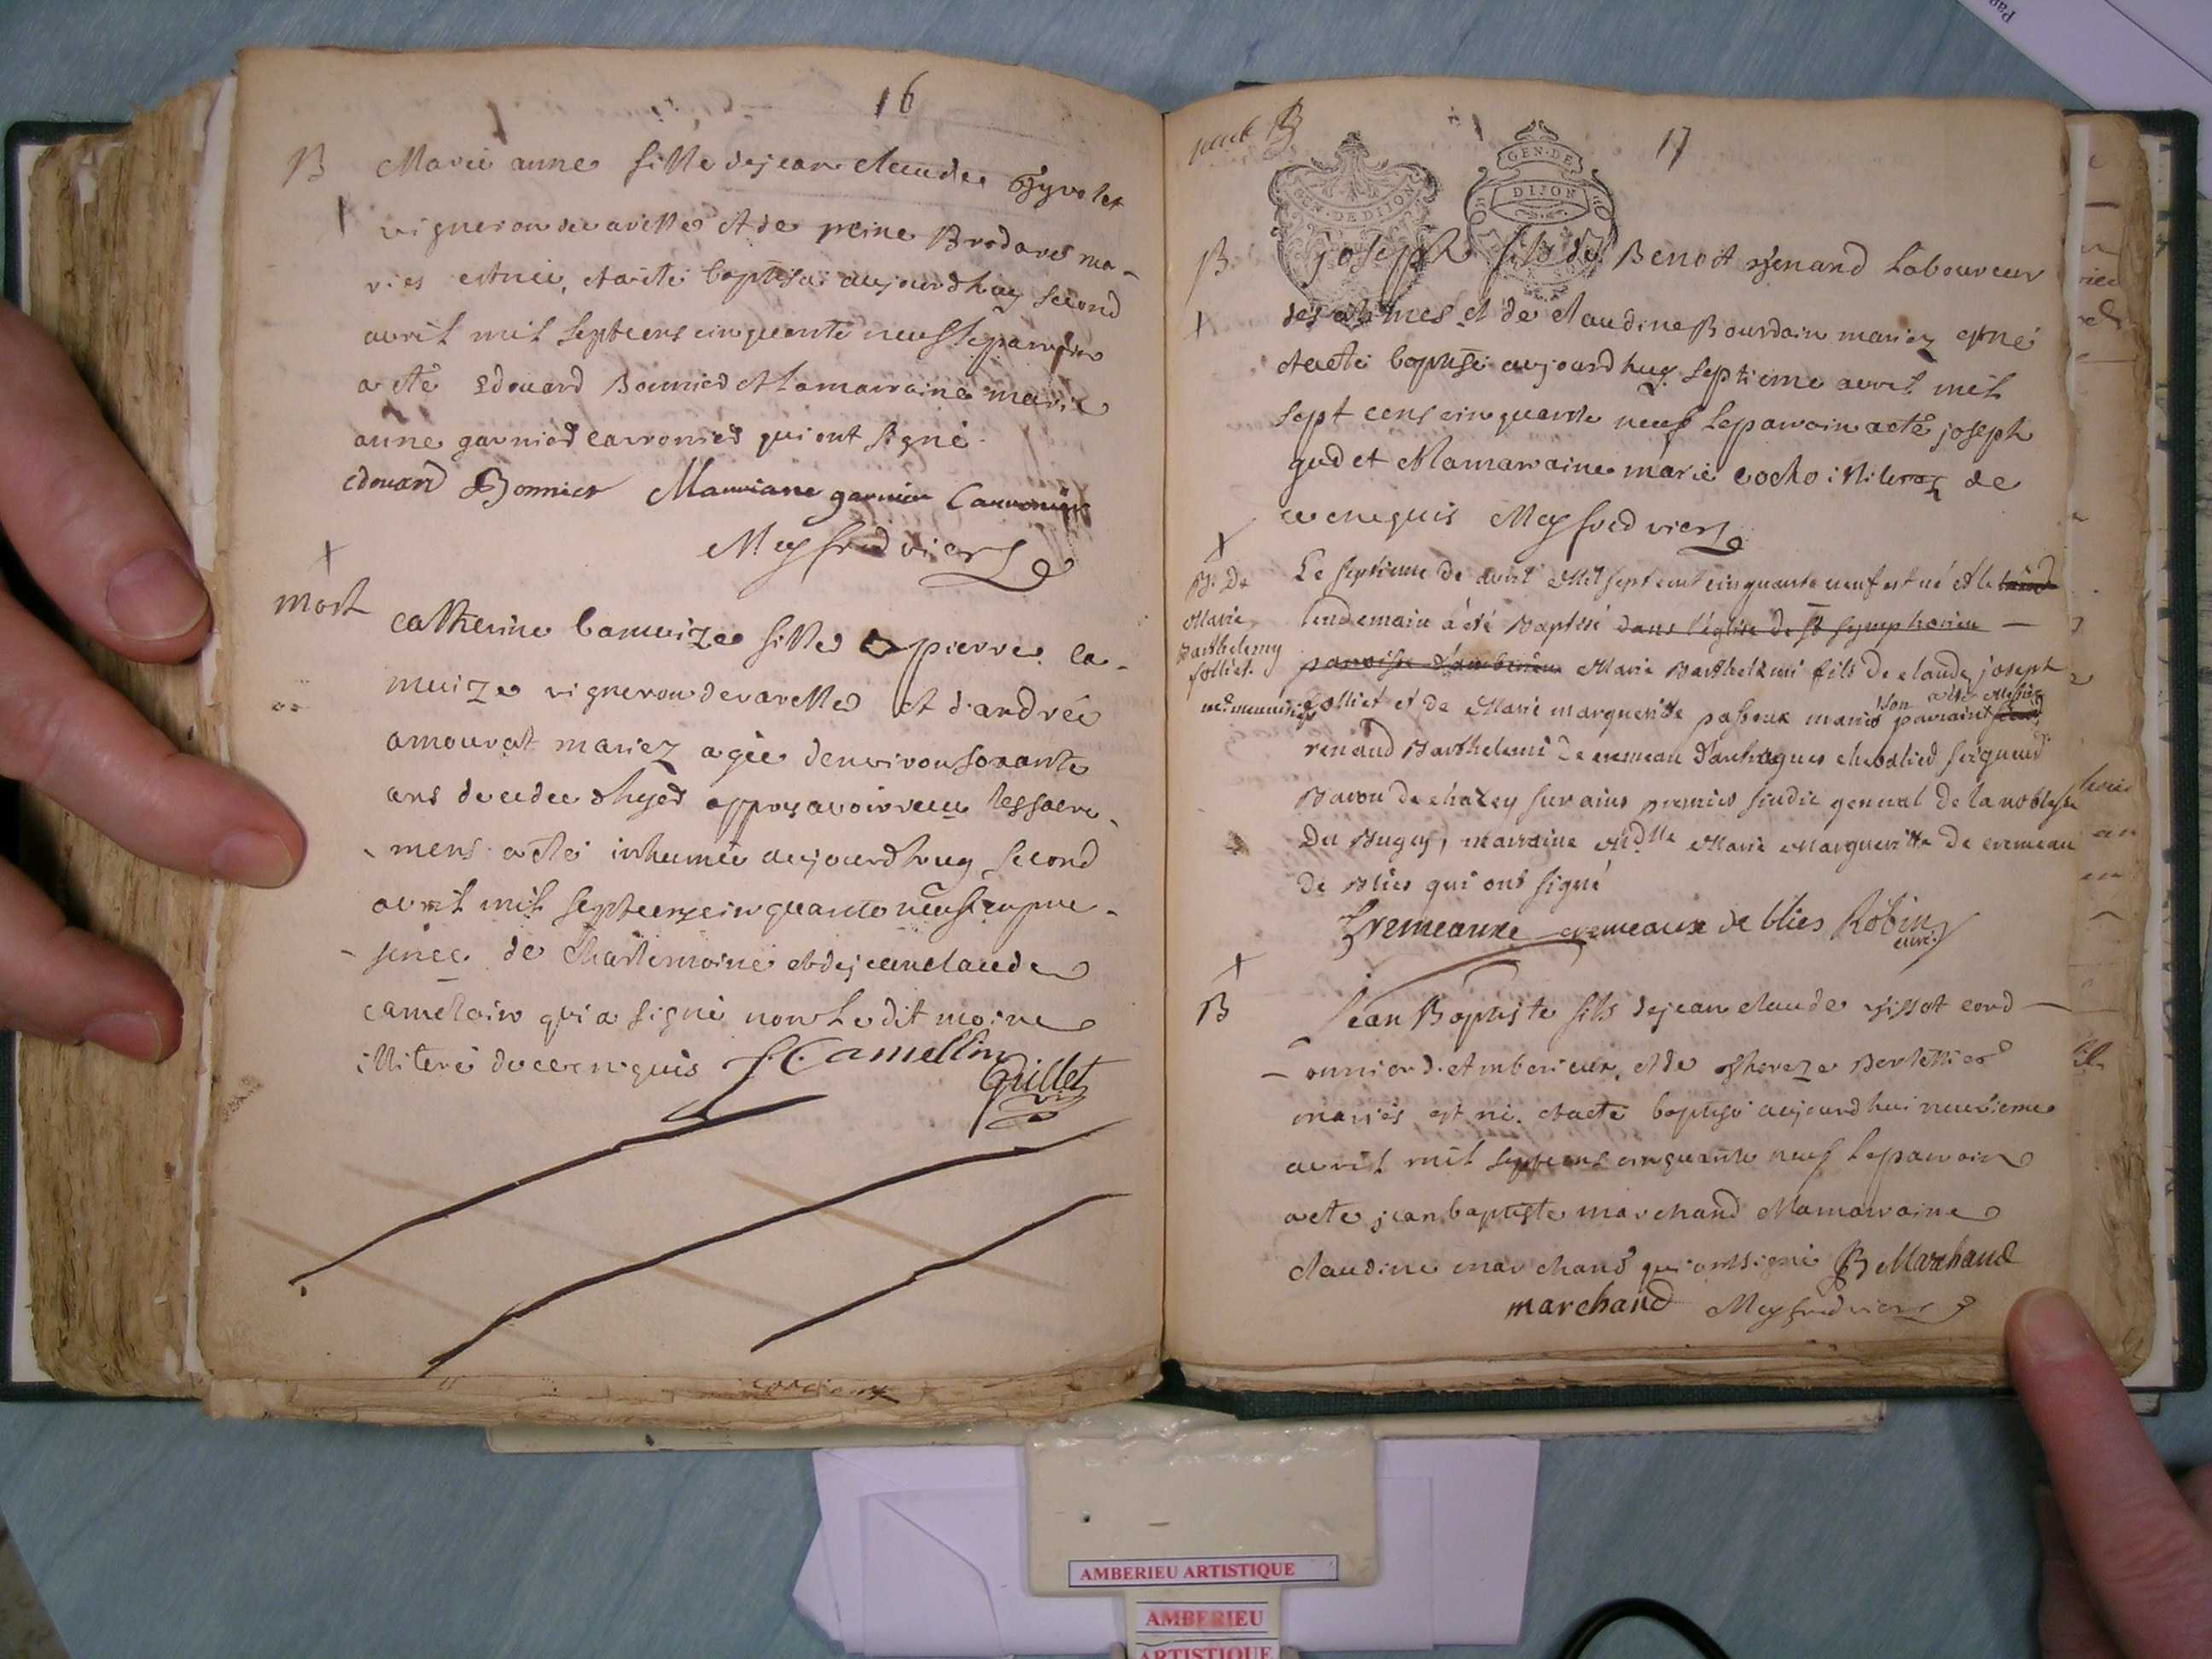 16
B Marie anne fille dejean claude
vigneron de varelles et de reine Brodard ma-
riés est née, et a eté baptisée aujourdhuy second
avril mil septcens cinquante neuf le parrain
a eté Edouard Bonnier et la marraine marie
anne garnier carronier qui ont signé
Edouard Bonnier Marriane garnier Carronier
Meyfred vicr
mort
catherine camuize fille pierre ca-
muize vigneron de varelles et d'andrée
amourat mariez agée d'environ soxante
ans decedee dhyer appres avoir receu les sacre-
mens a eté inhumée aujourdhuy second
avril mil septcenz cinquante neuf en pre-
sence de Charle moine et dejeanclaude
camelain qui a signé non ledit moine
illiteré dece enquis J. Camellin
Grillet
vic
GEN. DE DIJON
GEN. DE
DIJON
17
B joseph fils de Benoit Renand Laboureur
des et de claudine Bourdain mariez est né
et a eté baptisé aujourdhuy septieme avril mil
sept cens cinquante neuf le parrain a eté joseph
gudet et la marraine marie cocho illiterez de
ce enquis Meyfred vicr
B. De
Marie
Barthelemy
folliet.
Le septieme de avril Mil sept cent cinquante neuf est né et le
lendemain a été Baptisé dans l'églisse de St Symphorien
paroisse d'ambérieu Marie Barthelemi fils de claude joseph
folliet et de Marie margueritte passeux mariés son parrain a été Messire
renaud Barthelemi De cremeau d'antragues chevalier seigneur
Baron de chazey sur ains premier sindic general de la noblesse
Du Bugey, marraine Mdlle Marie Margueritte De cremeau
de Blies qui ont signé
Cremeaux cremeaux de blies Robin
curé
B Jean Baptiste fils dejean claude vissot cord-
onnier d'Amberieux, et de thereze Berlettier
mariés, est né. et a eté baptisé aujourdhui neuvieme
avril mil septcens cinquante neuf le parrain
a eté jean baptiste marchand et la marraine
claudine marchand qui ont signé JB Marchand
marchand Meyfred vicr
AMBERIEU ARTISTIQUE
AMBERIEU
ARTISTIQUE